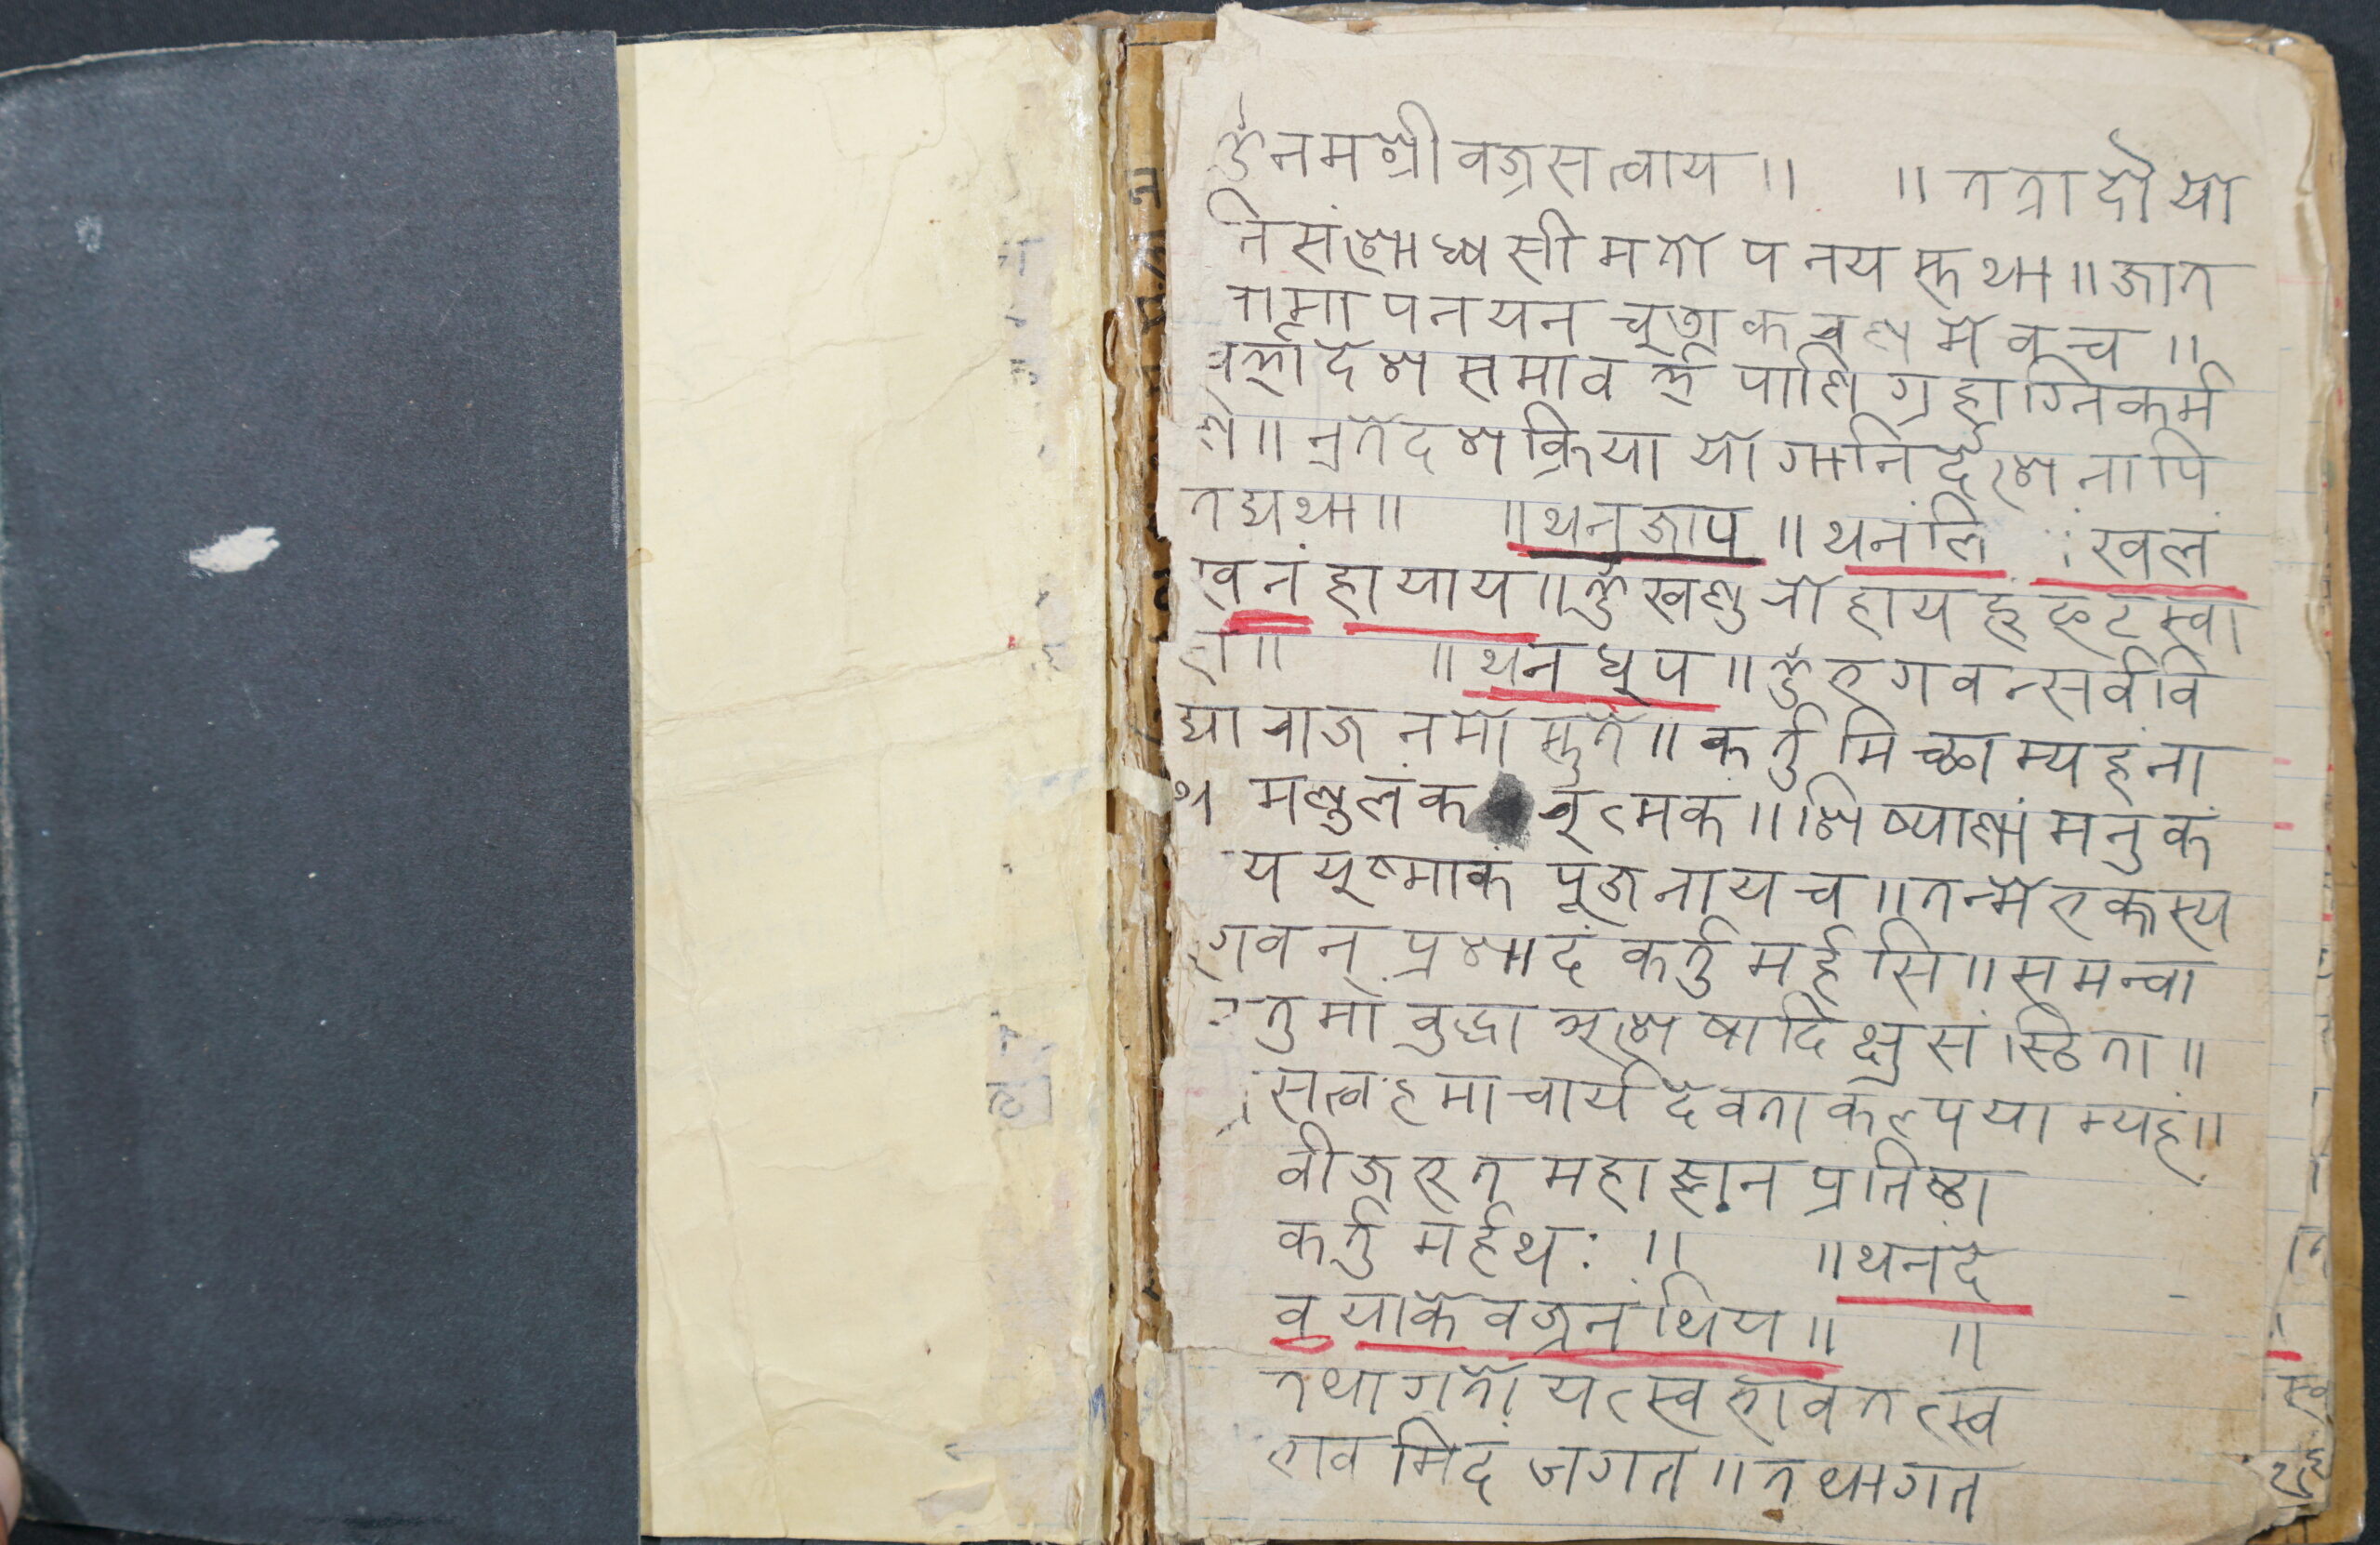 ॐ नमः श्रीवज्रसत्वाय ॥ ॥ तत्रादौ यो
नि संशोध्य सीमतोपनयस्तथा ॥ जात
नामोपनयन चूडाकरणमेव च ॥
व्रतादेश समावर्त पाणिग्रहाग्निकर्म
॥ एते दश क्रिया योगा निर्देश नापि
तद्यथा ॥ ॥ थन जाप ॥ थनंलि खल
खनं हायाय ॥ ॐ खण्डरोहाय हूं फट् स्वा
हा ॥ ॥ थन धूप ॥ ॐ भगवन् सर्ववि
द्याराज नमोस्तुते ॥ कर्तुमिच्छाम्यहं ना
थ मण्डलं क रुत्मकं ॥ शिष्याणां मनुकं
य युष्माकं पूजनाय च ॥ तन्मे भक्तस्य
गवन् प्रशादं कर्तुमर्हसि ॥ समन्वा
तु मां बुद्धा अशेषा दिक्षु संस्ठिता ॥
सत्वहमाचार्य देवता कल्पयाम्यहं ॥
बीजभूत महाज्ञान प्रतिष्ठा
कर्तुमर्हथः ॥ ॥ थन दे
व याके वज्रनं थिय ॥ ॥
तथागतो यत्स्वभाव तत्स्व
भावमिदं जगत ॥ तथागत